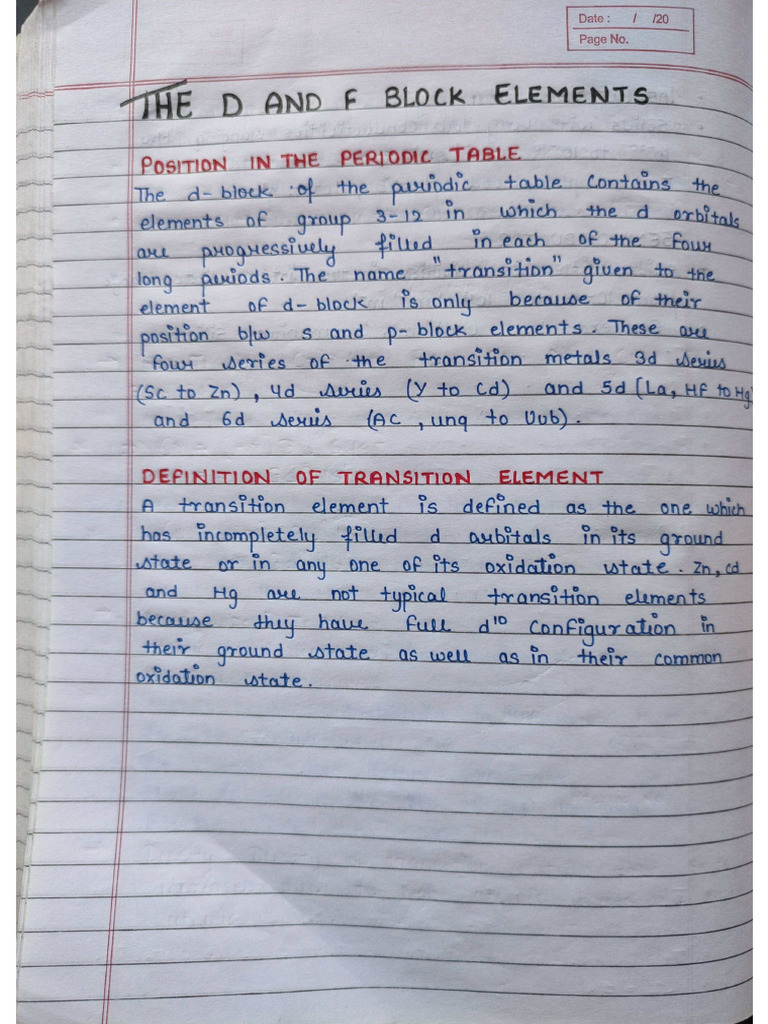 Date : / /20
Page No.
THE D AND F BLOCK ELEMENTS
POSITION IN THE PERIODIC TABLE
The d-block of the periodic table contains the
elements of group 3-12 in which the d orbitals
are progressively filled in each of the four
long periods. The name "transition" given to the
element of d-block is only because of their
position b/w s and p-block elements. These are
four series of the transition metals 3d series
(Sc to Zn), 4d series (Y to Cd) and 5d (La, Hf to Hg)
and 6d series (Ac, unq to Uub).
DEFINITION OF TRANSITION ELEMENT
A transition element is defined as the one which
has incompletely filled d orbitals in its ground
state or in any one of its oxidation state. Zn, cd
and Hg are not typical transition elements
because they have full d¹⁰ configuration in
their ground state as well as in their common
oxidation state.